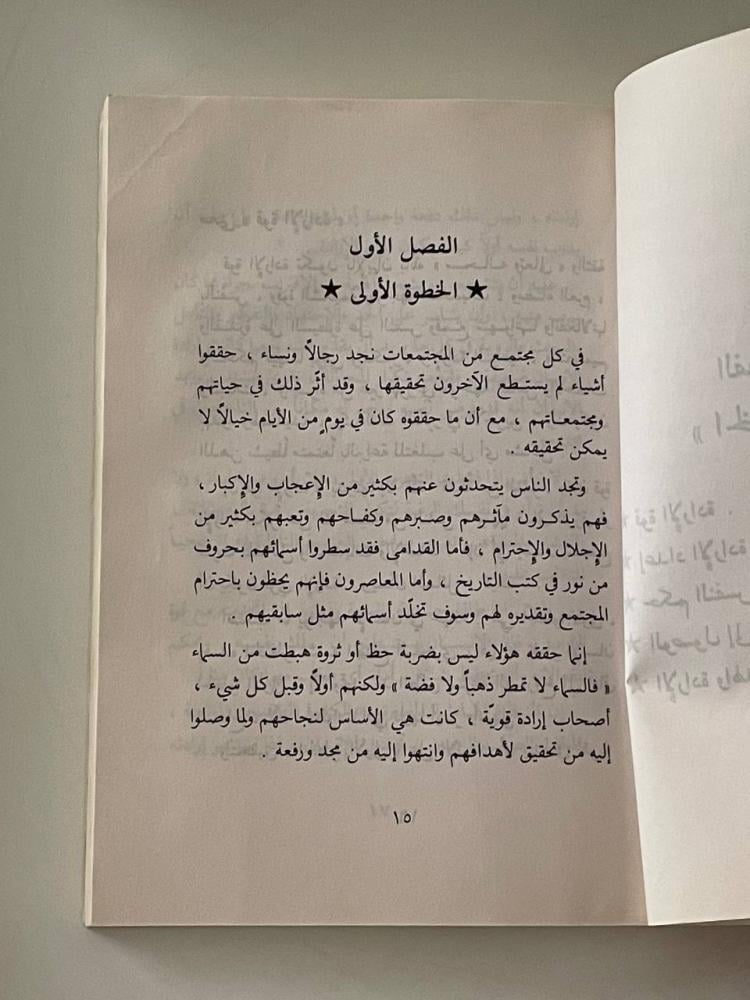 الفصل الأول
★ الخطوة الأولى ★
في كل مجتمع من المجتمعات نجد رجالاً ونساء ، حققوا
أشياء لم يستطع الآخرون تحقيقها ، وقد أثّر ذلك في حياتهم
ومجتمعاتهم ، مع أن ما حققوه كان في يومٍ من الأيام خيالاً لا
يمكن تحقيقه .
وتجد الناس يتحدثون عنهم بكثير من الإِعجاب والإِكبار ،
فهم يذكرون مآثرهم وصبرهم وكفاحهم وتعبهم بكثير من
الإِجلال والإِحترام ، فأما القدامى فقد سطروا أسمائهم بحروف
من نور في كتب التاريخ ، وأما المعاصرون فإنهم يحظون باحترام
المجتمع وتقديره لهم وسوف تخلّد أسمائهم مثل سابقيهم .
إنما حققه هؤلاء ليس بضربة حظ أو ثروة هبطت من السماء
« فالسماء لا تمطر ذهباً ولا فضة » ولكنهم أولاً وقبل كل شيء ،
أصحاب إرادة قويّة ، كانت هي الأساس لنجاحهم ولما وصلوا
إليه من تحقيق لأهدافهم وانتهوا إليه من مجد ورفعة .
١٥